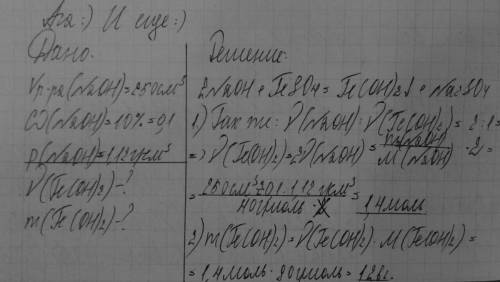 Ага:) И еще:)
Дано:
Vр-ра(NaOH)=250см³
ω(NaOH)=10%=0,1
ρ(NaOH)=1.12г/см³
ν(Fe(OH)₂)-?
m(Fe(OH)₂)-?
Решение:
2NaOH+FeSO₄=Fe(OH)₂↓+Na₂SO₄
1) Так же: ν(NaOH):ν(Fe(OH)₂)=2:1=
=>ν(Fe(OH)₂)=2ν(NaOH)=m(NaOH)/M(NaOH)·2=
=250см³·0.1·1.12г/см³/40г/моль·2=1,4моль.
2) m(Fe(OH)₂)=ν(Fe(OH)₂)·M(Fe(OH)₂)=
=1,4моль·90г/моль=126г.